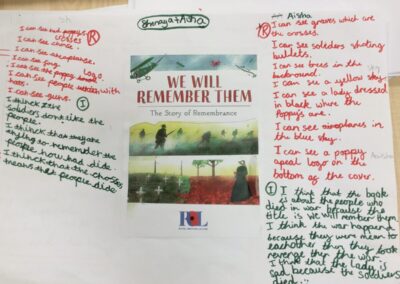 Shenaya + Aisha
R
I can see
crosses
I can see
I can see aeroplanes.
I can see
logo.
I can see the poppy
I can see people with
hats
I can see guns.
I
I think
soldiers don't like the
people.
I think that
to remember the
people how had did.
I think that the crosses
means that people die
WE WILL
REMEMBER THEM
The Story of Remembrance
Aisha
R
I can see graves which are
the crosses.
I can see soliders shoting
bullets.
I can see trees in the
background.
I can see a yellow sky
I can see a lady dressed
in black where the
Poppys are.
I can see airoplanes in
the blue sky.
I can see a poppy
apeal logo on the
bottom of the cover.
I
I think that the book
is about the people who
died in war because the
title is we will rember them.
I think the war happend
because they were mean to
eachother then they took
revenge then the war.
I think that the lady is
sad because the soldiers
died.